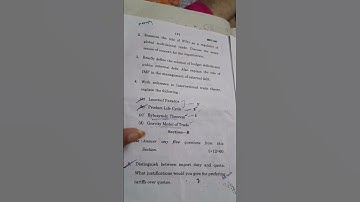 (2)
2. Discuss the role of WTO as a regulator of
global multilateral trade. Discuss the
means of sources for the organization.
3. Briefly define the concept of budget
public internal debt. Also explain the role of
IMF in the management of internal debt.
4. With reference to International trade theory,
explain the following:
(a) Leontief Paradox
(b) Product Life Cycle
(c) Rybczynski Theorem
(d) Gravity Model of Trade
Section—B
Note: Answer any five questions from this
Section.
Distinguish between import duty and quota.
What justifications would you give for preferring
tariffs over quotas.